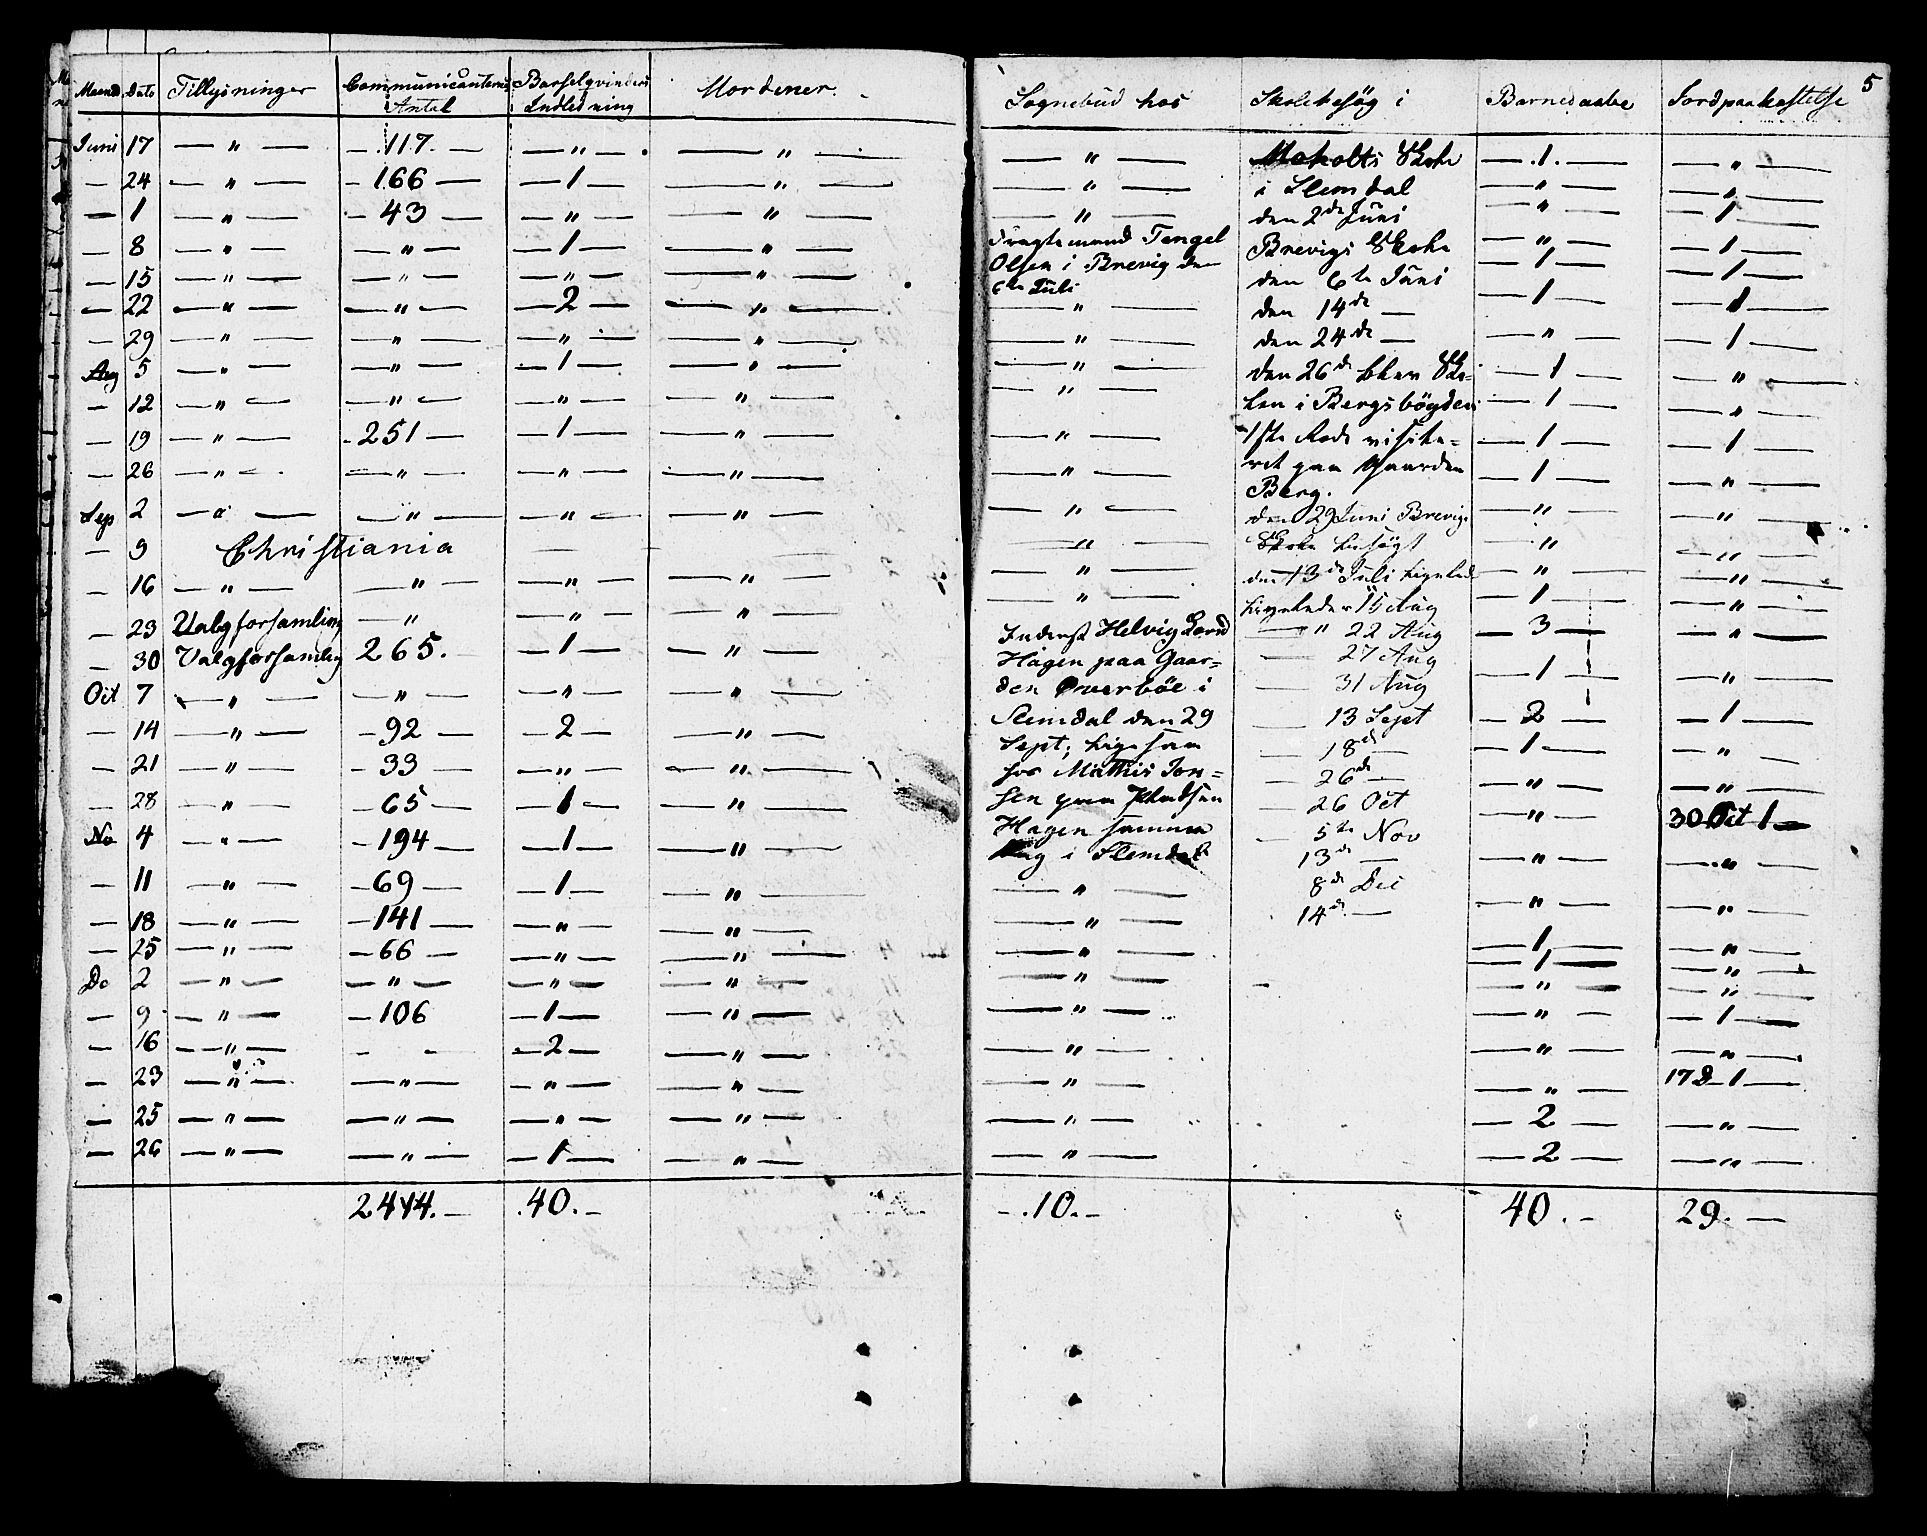 5
Maaned Dato Tillysninger Communicanternes Antal Barselqvinders Indledning
Sognebud hos Skolebesög i Barnedaabe Jordpaakastelse
Juni 17 — " — — 117. — — " — — " —
— 24 — " — — 166 — — 1 — — " —
— 1 — " — — 43 — — " — — " —
— 8 — " — — " — — 1 — — " —
— 15 — " — — " — — " — — " —
— 22 — " — — " — — 2 — — " —
— 29 — " — — " — — " — — " —
Aug 5 — " — — " — — 1 — — " —
— 12 — " — — " — — " — — " —
— 19 — " — — 251 — — 1 — — " —
— 26 — " — — " — — " — — " —
Sep 2 — " — — " — — " — — " —
— 9 Christiania — —
— 16 — " — — " — — " — — " —
— 23 Valgforsamling — " — — " — — " —
— 30 Valgforsamling 265. — 1 — — " —
Oct 7 — " — — " — — " — — " —
— 14 — " — — 92 — — 2 — — " —
— 21 — " — — 33 — — " — — " —
— 28 — " — — 65 — — 1 — — " —
No 4 — " — — 194 — — 1 — — " —
— 11 — " — — 69 — — 1 — — " —
— 18 — " — — 141 — — " — — " —
— 25 — " — — 66 — — " — — " —
De 2 — " — — " — — " — — " —
— 9 — " — — 106 — 1 — — " —
— 16 — " — — — — 2 — — " —
— 23 — " — — " — — " — — " —
— 25 — " — — " — — " — — " —
— 26 — " — — " — — 1 — — " —
2414. — 40. —
— " —
— " —
— " —
Tengel
Olsen i Brevig den
6te Juli
— " —
— " —
— " —
— " —
— " —
— " —
— " —
— " —
— " —
— " —
Inderst Helvig
Hagen paa Gaar=
den Överböe i
Slemdal den 29
Sept; ligesom
hos Mathis Jon=
sen paa
Hagen samme
Dag i Slemdal
— " —
— " —
— " —
— " —
— " —
— " —
— " —
— " —
— " —
— 10. —
Skole
i Slemdal
den 2de Juni
Brevigs Skole
den 6te Juni
den 14de —
den 24de —
den 26de blev Sko=
len i Bergsbögden
1ste Rode visite=
ret paa Gaarden
Berg.
den 29 Juni Brevigs
Skole besögt
den 13de Juli ligeled
ligeledes 15 Aug
— " 22 Aug
— 27 Aug
— 31 Aug
— 13 Sept
— 18de —
— 26de —
— 26 Oct
— 5te Nov
13de —
8de Dec
14de —
— 1. — — " —
— " — — " —
— " — — 1 —
— " — — 1 —
— 1 — — 1 —
— 1 — — 1 —
— " — — 1 —
— 1 — — " —
— 1 — — " —
— 1 — — 1 —
— 1 — — " —
— " — — " —
— " — — " —
— " — — " —
— 1 — — " —
— 3 — — " —
— 1 — — " —
— 2 — — 1 —
— 1 — — " —
— " — — " —
— " — 30 Oct 1 —
— " — — " —
— " — — " —
— 1 — — " —
— 1 — — " —
— " — — " —
— " — — 1 —
— " — — " —
— " — 17 D 1 —
— 2 — — " —
— 2 — — " —
40. — 29. —